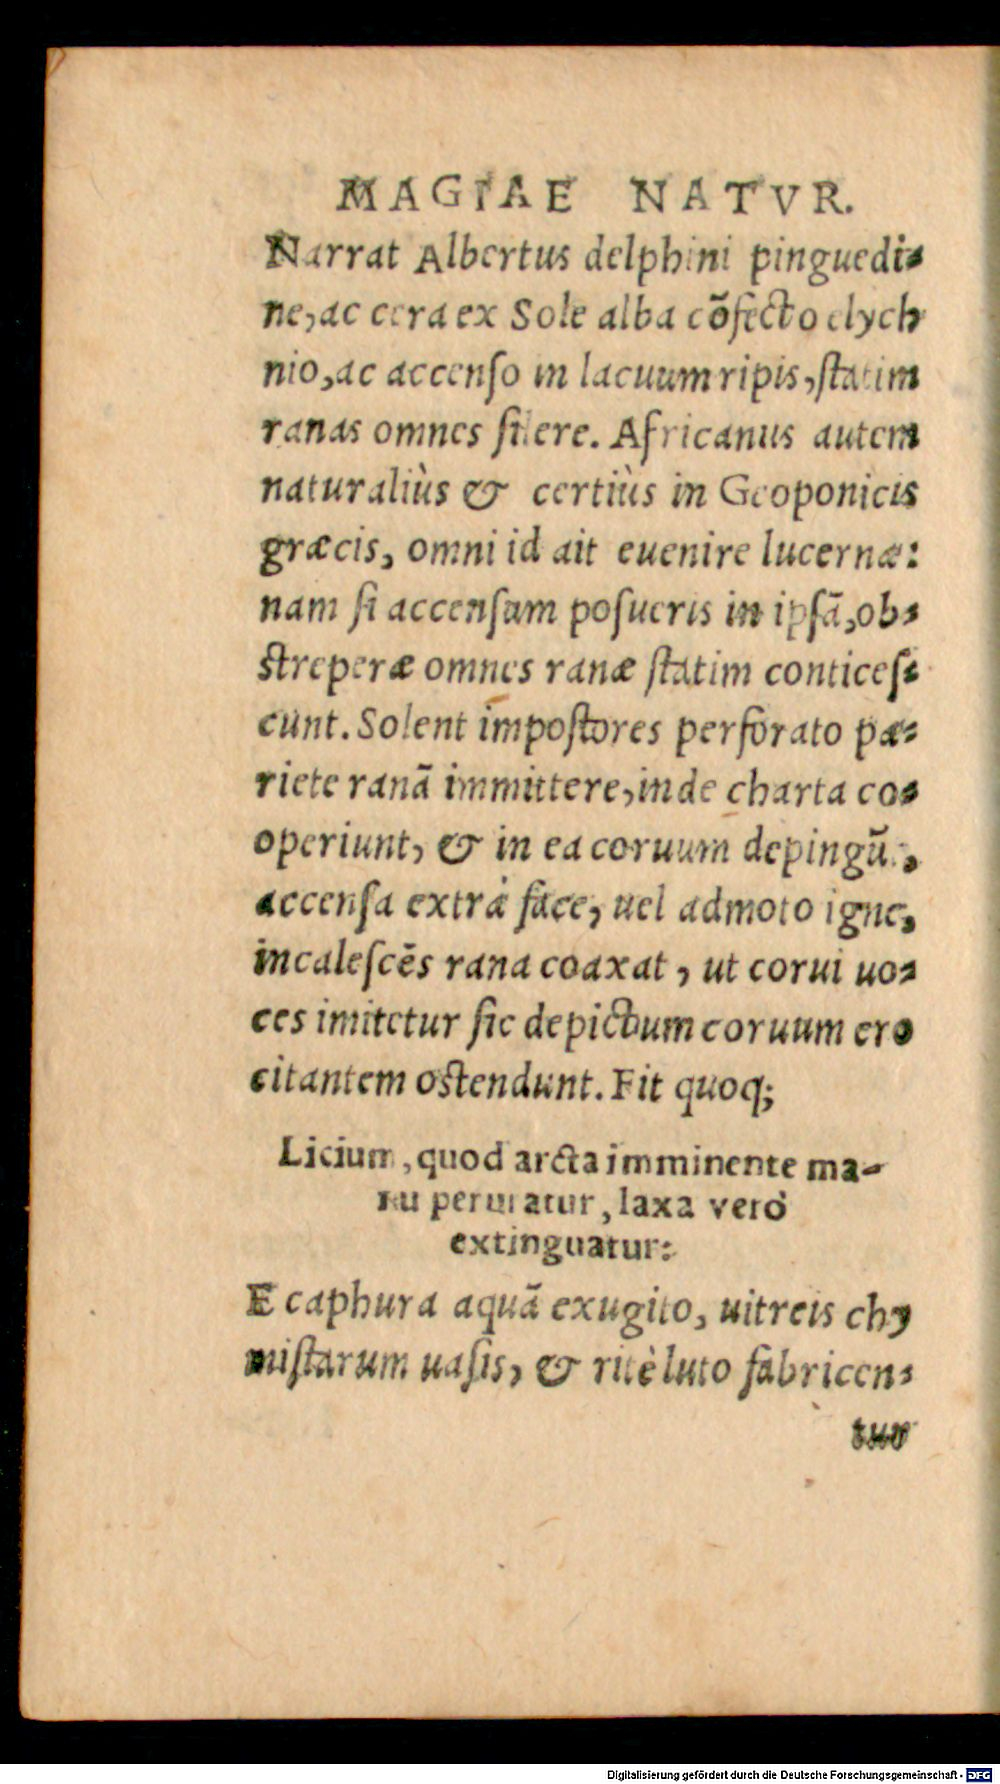 MAGIAE NATVR.
Narrat Albertus delphini pinguedi-
ne, ac cera ex Sole alba cõfecto elych
nio, ac accenso in lacuum ripis, statim
ranas omnes silere. Africanus autem
naturaliùs & certiùs in Geoponicis
græcis, omni id ait euenire lucernæ:
nam si accensam posueris in ipsã, ob-
streperæ omnes ranæ statim contices-
cunt. Solent impostores perforato pa-
riete ranã immittere, inde charta co-
operiunt, & in ea coruum depingũt,
accensa extrà face, uel admoto igne,
incalescẽs rana coaxat, ut corui uo-
ces imitetur sic depictum coruum cro
citantem ostendunt. Fit quoq;
Licium, quod arcta imminente ma-
nu peruratur, laxa verò
extinguatur:
E caphura aquã exugito, uitreis chy
mistarum uasis, & ritè luto fabricen-
tur
Digitalisierung gefördert durch die Deutsche Forschungsgemeinschaft - DFG